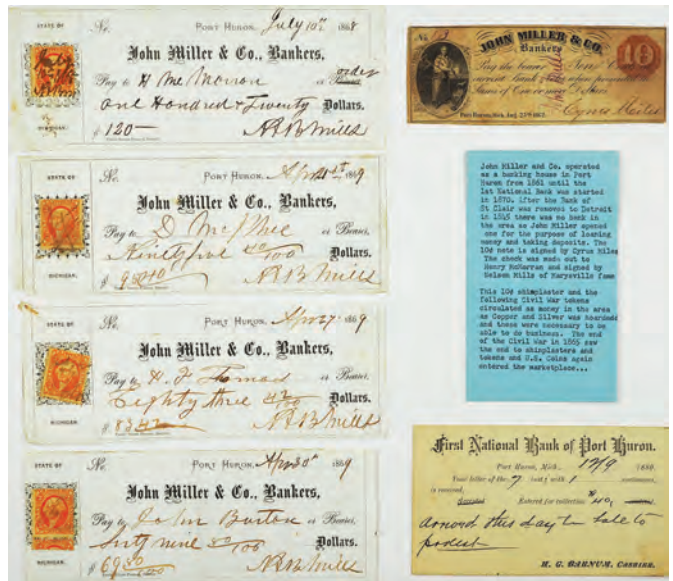 STATE OF
MICHIGAN.
No.
PORT HURON, July 10th 1868
John Miller & Co., Bankers,
Pay to H McMorran or Bearer, order
One Hundred & Twenty Dollars.
$ 120 — N & B Mills
STATE OF
MICHIGAN.
No.
PORT HURON, Apr 21st 1869
John Miller & Co., Bankers,
Pay to D McPhee or Bearer,
Ninety five 40/100 Dollars.
$ 95 40 N & B Mills
STATE OF
MICHIGAN.
No.
PORT HURON, Apr 27 1869
John Miller & Co., Bankers,
Pay to H. F. Thomas or Bearer,
Eighty three 42/100 Dollars.
$ 83 42 N & B Mills
STATE OF
MICHIGAN.
No.
PORT HURON, Apr 30th 1869
John Miller & Co., Bankers,
Pay to John Burton or Bearer,
Sixty nine 50/100 Dollars.
$ 69 50/100 N & B Mills
No
JOHN MILLER & CO.
Bankers
10
Pay the bearer Ten C
current Bank
Sums of One or more Dollars
Port Huron, Mich. Aug. 25th 1862.
Cyrus Miles
John Miller and Co. operated
as a banking house in Port
Huron from 1861 until the
1st National Bank was started
in 1870. After the Bank of
St Clair was removed to Detroit
in 1845 there was no bank in
the area so John Miller opened
one for the purpose of loaning
money and taking deposits. The
10¢ note is signed by Cyrus Miles
The check was made out to
Henry McMorran and signed by
Nelson Mills of Marysville fame
This 10¢ shinplaster and the
following Civil War tokens
circulated as money in the area
as Copper and Silver was hoarded
and these were necessary to be
able to do business. The end
of the Civil War in 1865 saw
the end to shinplasters and
tokens and U.S. Coins again
entered the marketplace...
First National Bank of Port Huron.
Port Huron, Mich., 12/9 1880.
Your letter of the 7 inst; with 1 enclosures,
is received,
Accepted Entered for collection $40,
arrived this day too late to
protest
H. G. BARNUM, CASHIER.